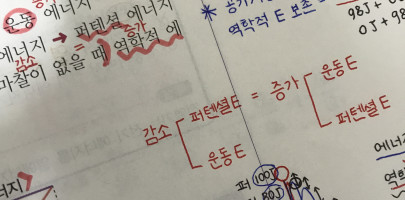 운동 에너지
증가
에너지 → 퍼텐셜 에너지
감소 =
마찰이 없을 때 역학적 에
* 공기
역학적 E 보존
98J +
0J + 98
감소 퍼텐셜E = 증가 운동E
운동E 퍼텐셜E
너지
에너
역학
퍼 100J
80J